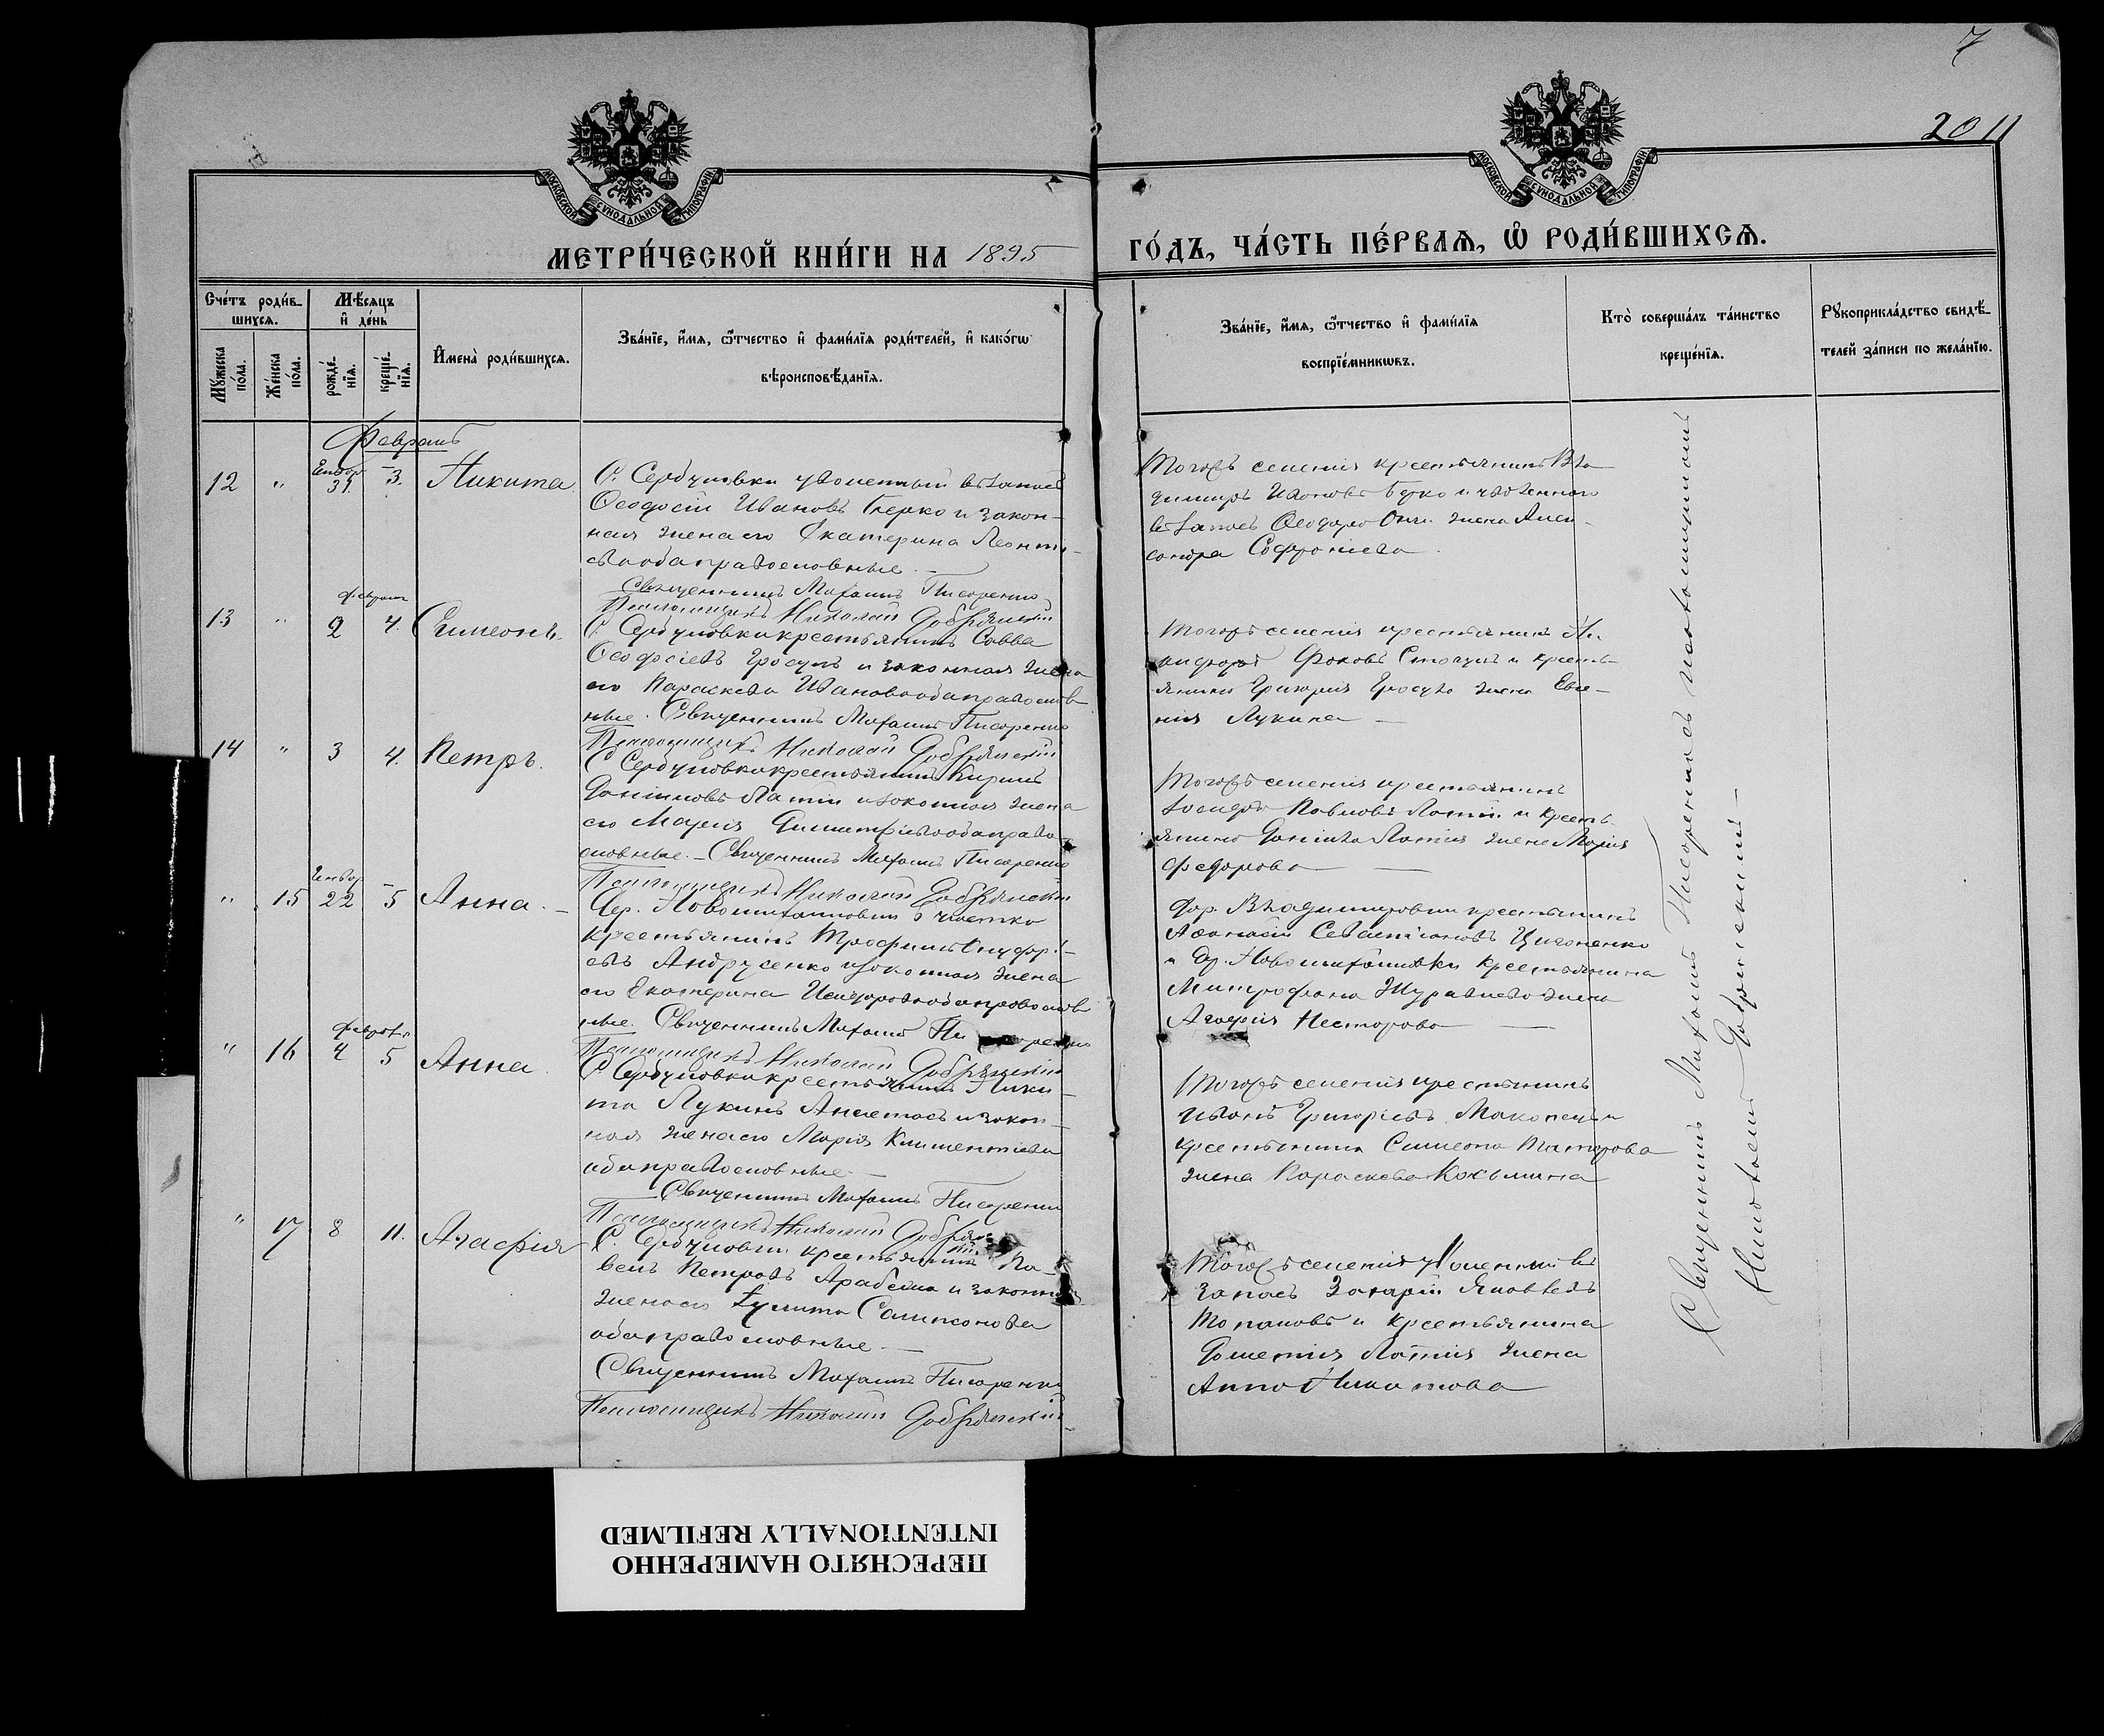 7
20 11
МОСКОВСКОЙ СѴНОДАЛЬНОЙ ТИПОГРАФІИ
МОСКОВСКОЙ СѴНОДАЛЬНОЙ ТИПОГРАФІИ
МЕТРИ́ЧЕСКОЙ КНИ́ГИ НА 1895 ГО́ДЪ, ЧА́СТЬ ПЕ́РВАѦ, Ѽ РОДИ́ВШИХСѦ.
Сче́тъ роди́в-
шихсѧ.
Мꙋ́жеска
по́ла.
Же́нска
по́ла.
Мѣ́сѧцъ
и҆ де́нь
рожде́-
нїѧ.
креще́-
нїѧ.
И҆мена̀ роди́вшихсѧ.
Зва́нїе, и҆́мѧ, ѻ҆́тчество и҆ фами́лїѧ роди́телей, и҆ како́гѡ
вѣроисповѣ́данїѧ.
Зва́нїе, и҆́мѧ, ѻ҆́тчество и҆ фами́лїѧ
воспрїе́мникѡвъ.
Кто̀ соверша́лъ та́инство
креще́нїѧ.
Рꙋкоприкла́дство свидѣ́-
телей за́писи по жела́нїю.
Февраль
12 " Январ 31. 3. Никита.
С. Сербуловки уволенный въ запасъ
Ѳеодосій Ивановъ и закон-
ная жена его Екатерина Леонті-
ева оба православные.
Священникъ Михаилъ Писаренко
Псаломщикъ Николай Добрянскій
Тогожъ селенія крестьянинъ Вла-
димиръ Ивановъ и уволеннаго
въ запасъ Ѳеодора жена Алек-
сандра Софроніева
13 " Февраль 2 4. Симеонъ.
С. Сербуловки крестьянинъ Савва
Ѳеодосіевъ Гросулъ и законная жена
его Параскева Иванова оба православ
ные. Священникъ Михаилъ Писаренко
Псаломщикъ Николай Добрянскій
Тогожъ селенія крестьянинъ Ни-
кифоръ Фоковъ и кресть-
янина Григорія Гросула жена Евге-
нія Лукина —
14 " 3 4. Петръ.
С. Сербуловки крестьянинъ Кирилъ
Даніиловъ Латій и законная жена
его Марія Димитріева оба право-
славные. — Священникъ Михаилъ Писаренко
Псаломщикъ Николай Добрянскій
Тогожъ селенія крестьянинъ
Павловъ Латій и кресть-
янина Даніила Латія жена Марія
Федорова —
" 15 Январ 22 5 Анна. —
Дер. Новомихайловки участка
крестьянинъ Трофимъ Онуфрі-
евъ Андрусенко и законная жена
его Екатерина Исидорова оба православ
ные. Священникъ Михаилъ Писаренко
Псаломщикъ Николай Добрянскій
Дер. Владимировки крестьянинъ
Аѳанасій Севастіановъ Цигоненко
и Др. Новомихайловки крестьянина
Митрофана Журавлева жена
Агафія Несторова —
" 16 Феврал. 4 5 Анна.
С. Сербуловки крестьянинъ Ники-
та Лукинъ и закон-
ная жена его Марія Климентіева
оба православные. —
Священникъ Михаилъ Писаренко
Псаломщикъ Николай Добрянскій
Тогожъ селенія крестьянинъ
Иванъ Григоріевъ и
крестьянина Симеона
жена Параскева Козьмина
" 17 8 11. Агафія
С. Сербуловки крестьянинъ Па-
велъ Петровъ и законная
жена его Самсонова
оба православные. —
Священникъ Михаилъ Писаренко
Псаломщикъ Николай Добрянскій
Тогожъ селенія уволенный въ
запасъ Захарій Яковлевъ
и крестьянина
Латія жена
Анна
Священникъ Михаилъ Писаренко съ псаломщикомъ
Николаемъ Добрянскимъ —
ПЕРЕСНЯТО НАМЕРЕННО
INTENTIONALLY REFILMED